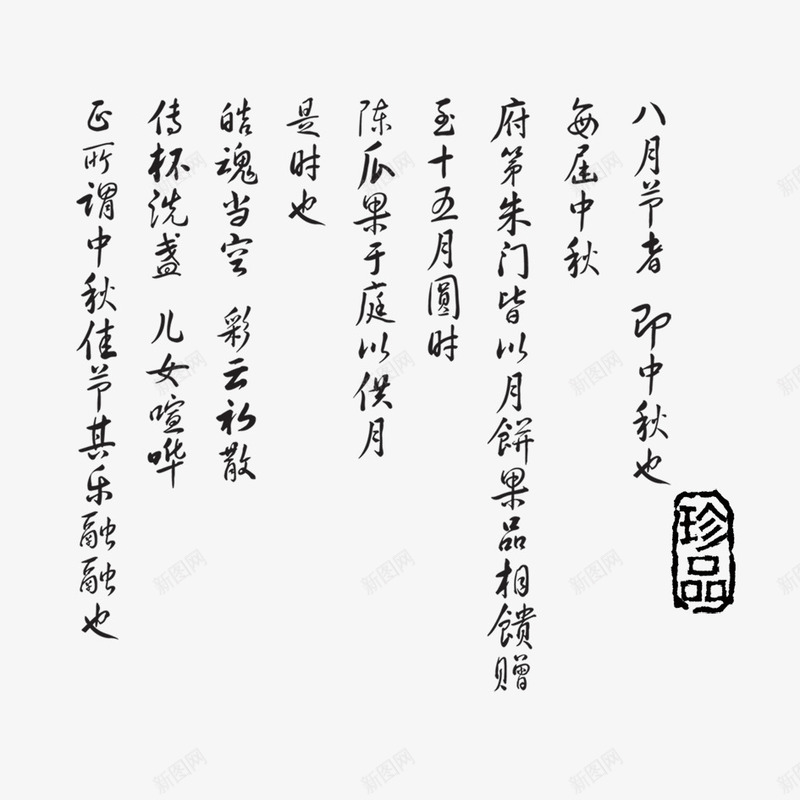 八月节者 即中秋也
每届中秋
府第朱门皆以月餅果品相饋赠
至十五月圓时
陈瓜果于庭以供月
是时也
皓魂当空 彩云初散
传杯洗盏 儿女喧哗
正所谓中秋佳节其乐融融也
珍品
新图网